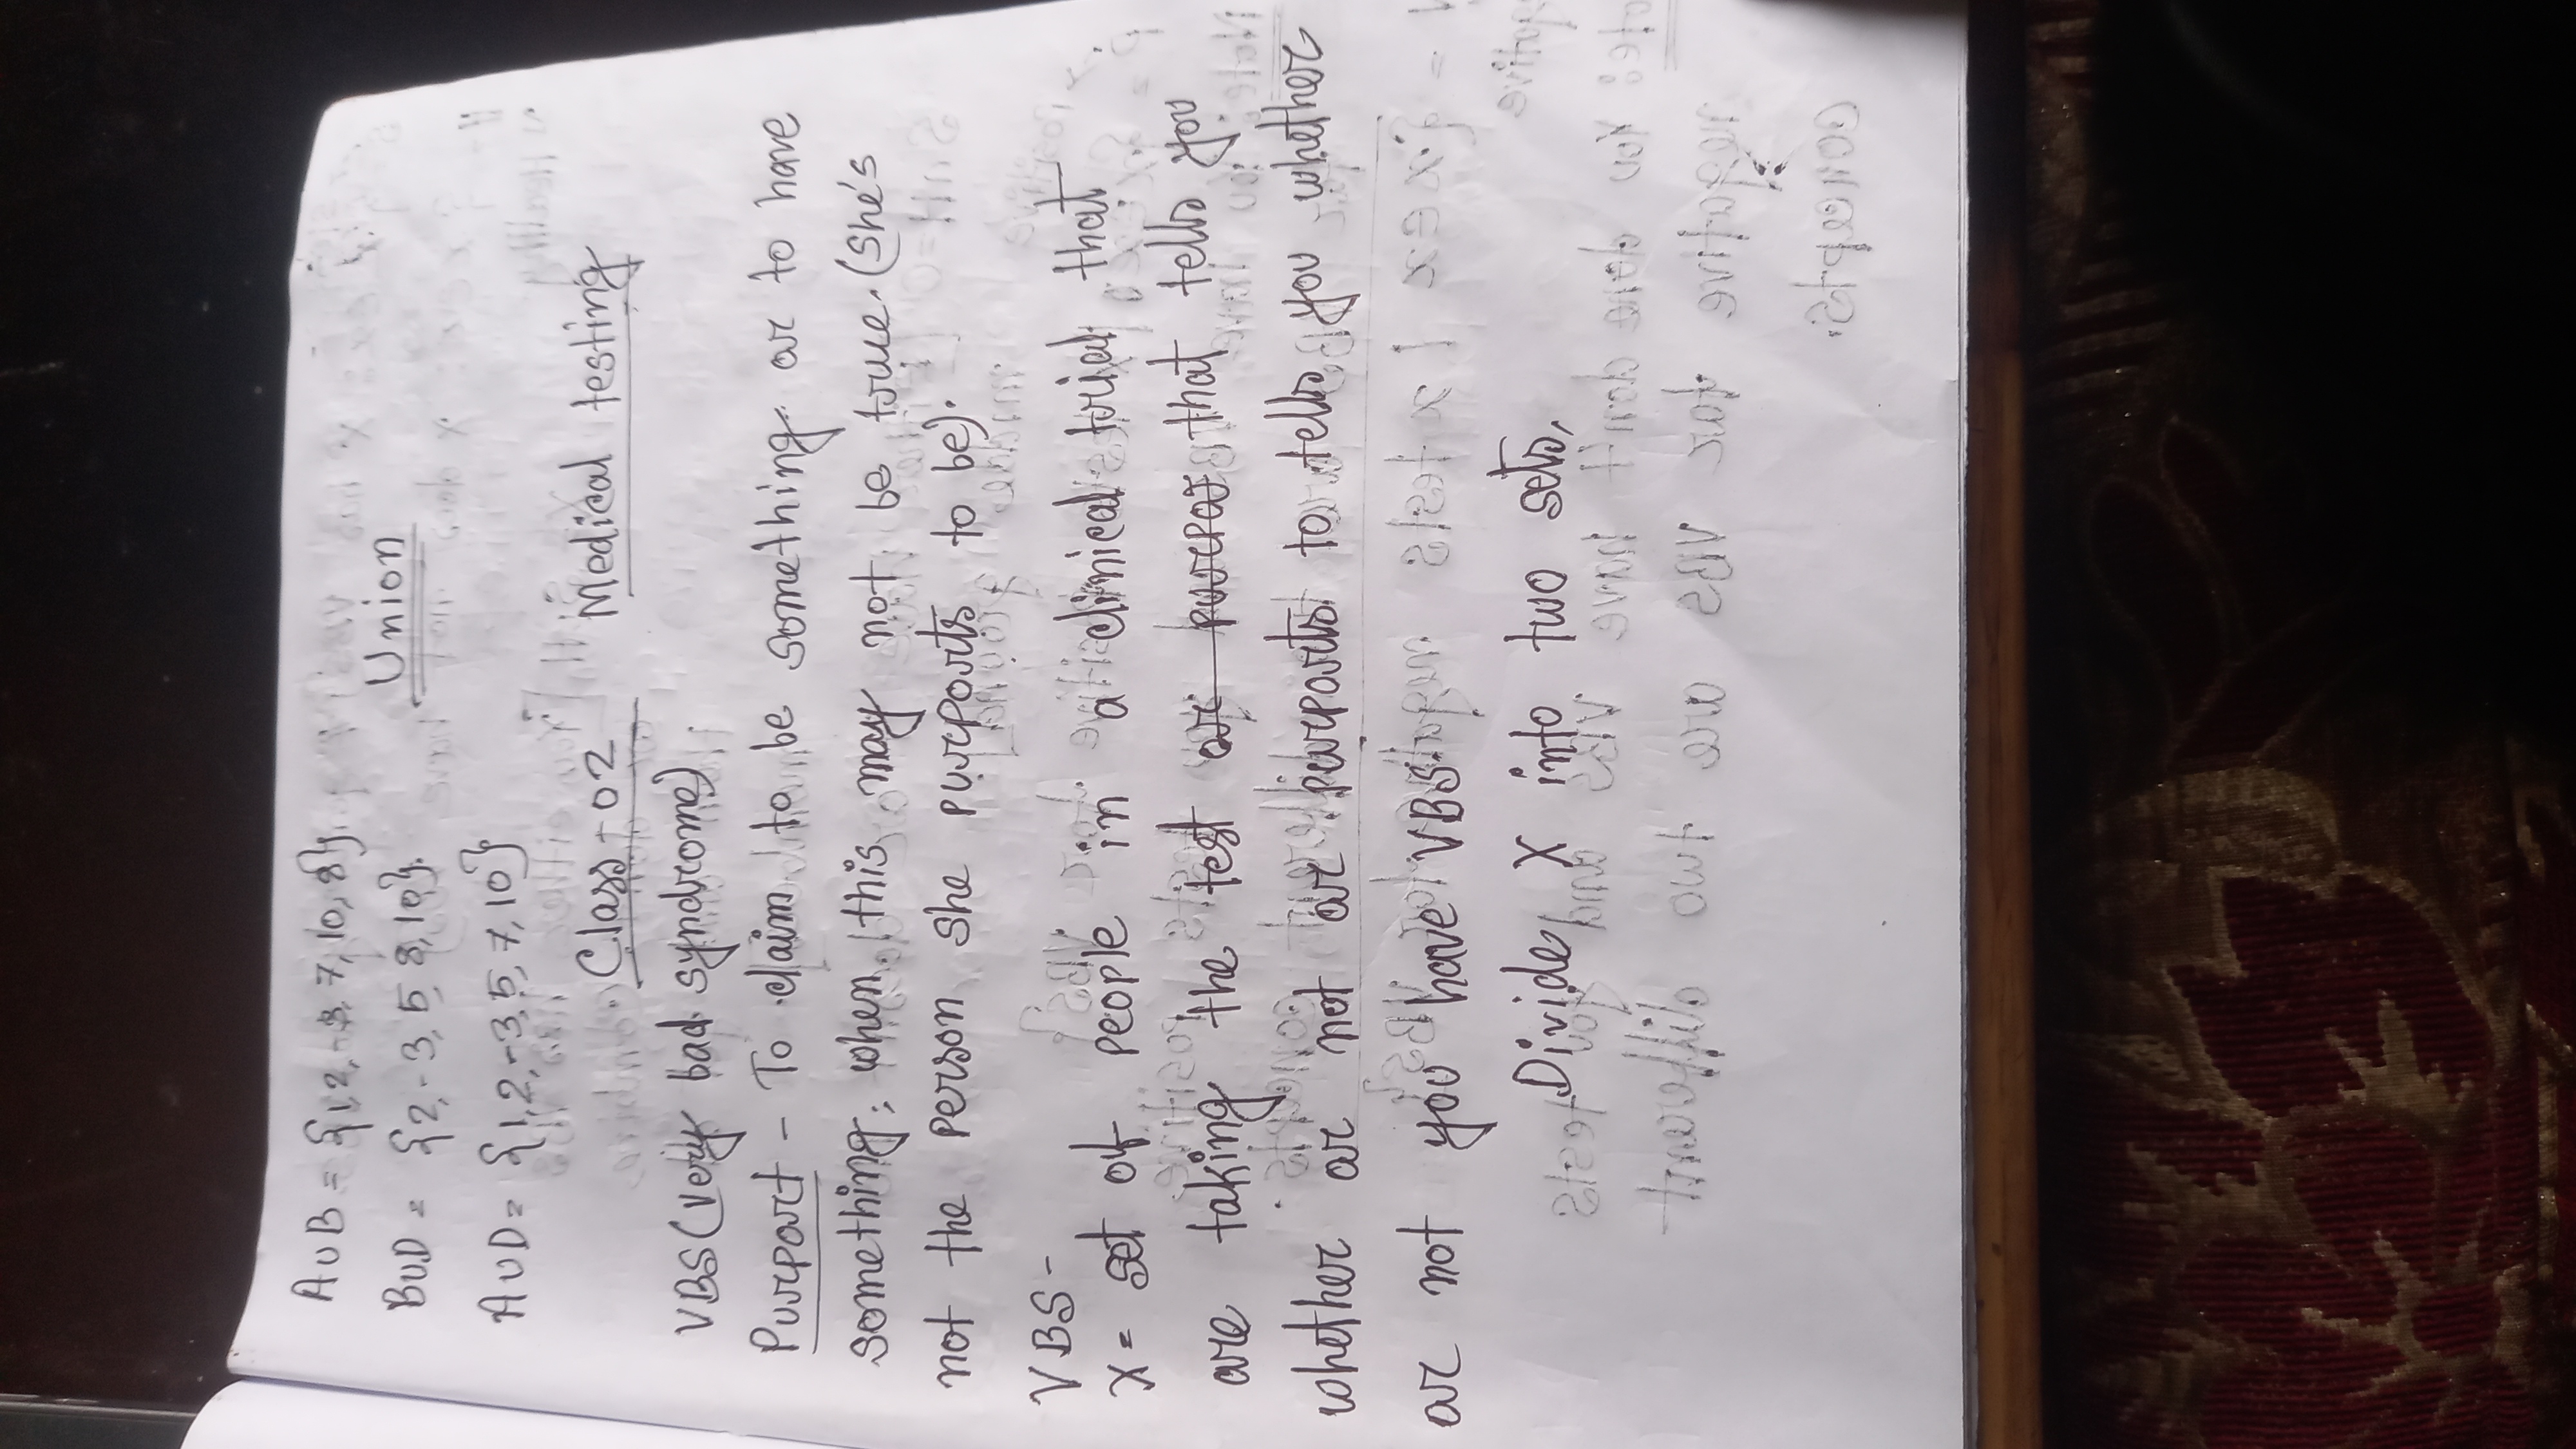 A∪B = {1,2,-3,7,10,8}.
B∪D = {2,-3,5,8,10}.
Union
A∪D = {1,2,-3,5,7,10}
Class-02 Medical testing
VBS (very bad syndrome)
Purport - To claim to be something or to have
something, when this may not be true. (She's
not the person she purports to be).
VBS -
X = set of people in a clinical trial that
are taking the test or purpor that tells you
whether or not or purports to tells you whether
or not you have VBS.
Divide X into two sets,